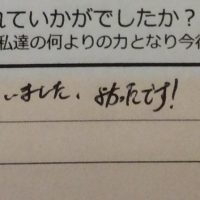 れていかがでしたか？
私達の何よりの力となり今後
いました、よかったです！